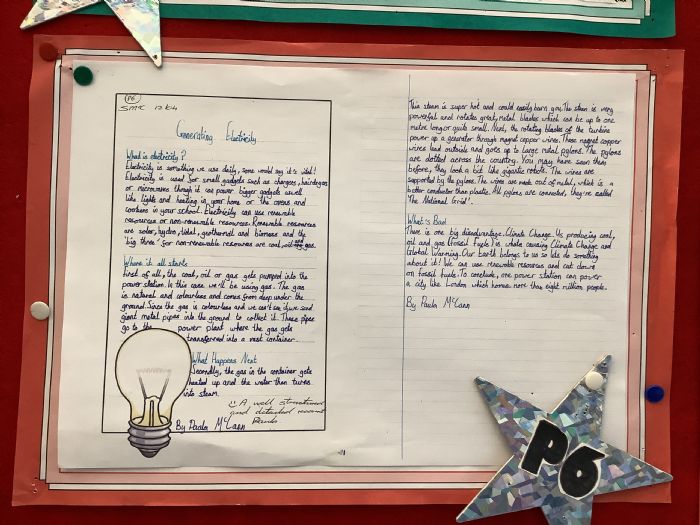 P6
Generating Electricity
What is electricity?
Electricity is something we use daily, some would say it's vital!
Electricity is used for small gadgets such as chargers, hairdryers
or microwaves though it can power bigger gadgets aswell
like lights and heating in your home or the ovens and
cookers in your school. Electricity can use renewable
resources or non-renewable resources. Renewable resources
are solar, hydro, tidal, geothermal and biomass and the
'big three' for non-renewable resources are coal, oil and gas.
Where it all starts
First of all, the coal, oil or gas gets pumped into the
power station. In this case we'll be using gas. The gas
is natural and colourless and comes from deep under the
ground. Since the gas is colourless and we can't see it, we send
giant metal pipes into the ground to collect it. These pipes
go to the power plant where the gas gets
transferred into a vast container.
What Happens Next
Secondly, the gas in the container gets
heated up and the water then turns
into steam.
A well structured
and detailed account
Paula
By Paula McCann
This steam is super hot and could easily burn you. The steam is very
powerful and rotates great, metal blades which can be up to one
metre long or quite small. Next, the rotating blades of the turbine
power up a generator through magnet copper wires. These magnet copper
wires lead outside and goes up to large metal pylons. The pylons
are dotted across the country. You may have seen them
before, they look a bit like gigantic robots. The wires are
supported by the pylons. The wires are made out of metal, which is a
better conductor than plastic. All pylons are connected, they're called
'The National Grid'.
What's Bad
There is one big disadvantage. Climate Change. Us producing coal,
oil and gas (Fossil Fuels) is whats causing Climate Change and
Global Warming. Our Earth belongs to us so lets do something
about it! We can use renewable resources and cut down
on fossil fuels. To conclude, one power station can power
a city like London which homes more than eight million people.
By Paula McCann
P6